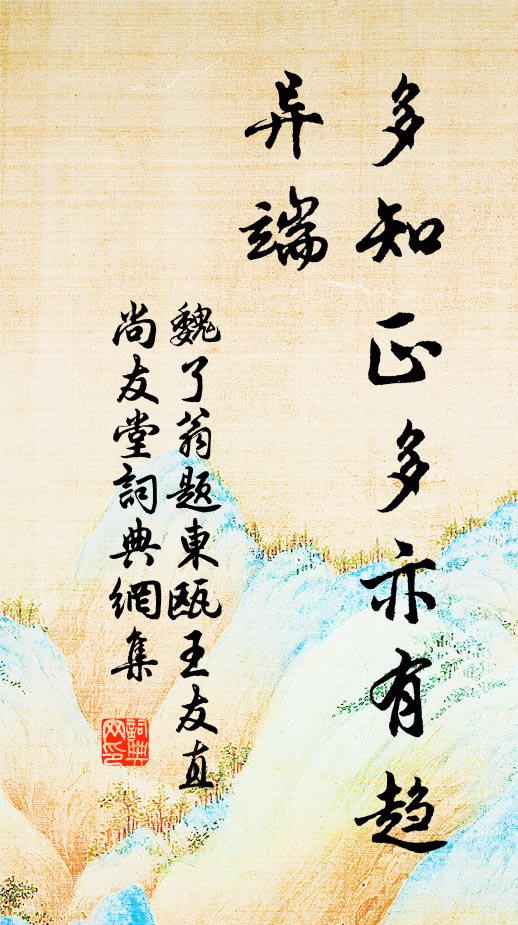 多知正多亦有趋
异端
魏了翁题東甌王友直
尚友堂詞典網集
詞典网印